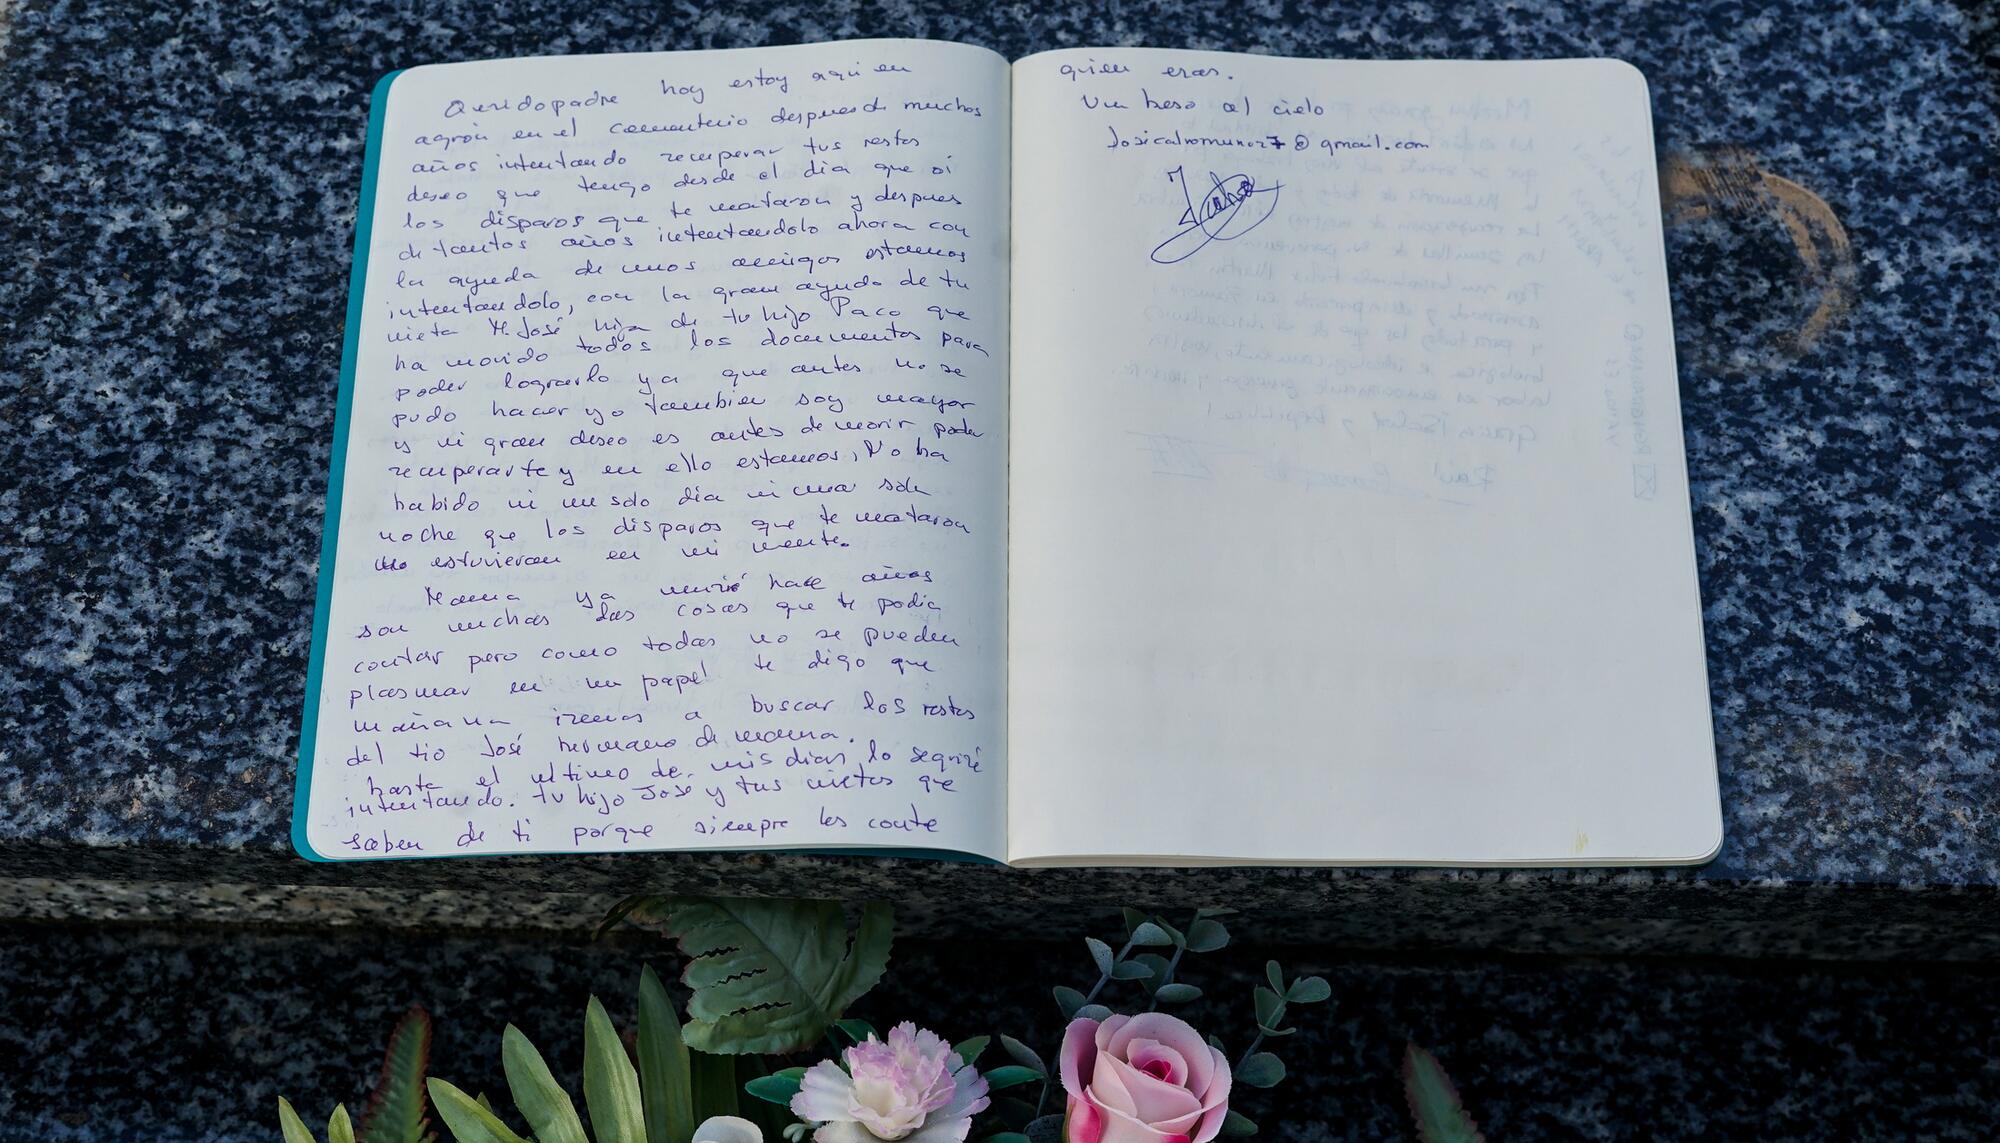 Querido padre hoy estoy aqui en
agrón en el cementerio despues de muchos
años intentando recuperar tus restos
deseo que tengo desde el dia que oí
los disparos que te mataron y despues
de tantos años intentandolo ahora con
la ayuda de unos amigos estamos
intentandolo, con la gran ayuda de tu
nieta Mª José hija de tu hijo Paco que
ha movido todos los documentos para
poder lograrlo ya que antes no se
pudo hacer yo tambien soy mayor
y mi gran deseo es antes de morir poder
recuperarte y en ello estamos, No ha
habido ni un solo dia ni una sola
noche que los disparos que te mataron
no estuvieran en mi mente.
Mama ya murió hace años
son muchas las cosas que te podia
contar pero como todas no se pueden
plasmar en un papel te digo que
mañana iremos a buscar los restos
del tio José hermano de mama.
hasta el ultimo de mis dias lo seguiré
intentando. tu hijo José y tus nietos que
saben de ti porque siempre les conte
quien eras.
Un beso al cielo